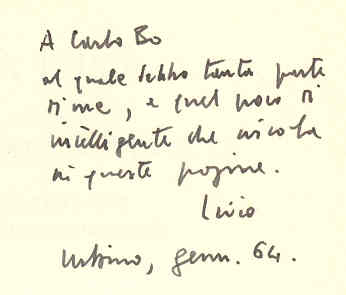 A Carlo Bo
al quale debbo tanta parte
di me, e quel poco di
intelligente che circola
in queste pagine.
Livio
Urbino, genn. 64.